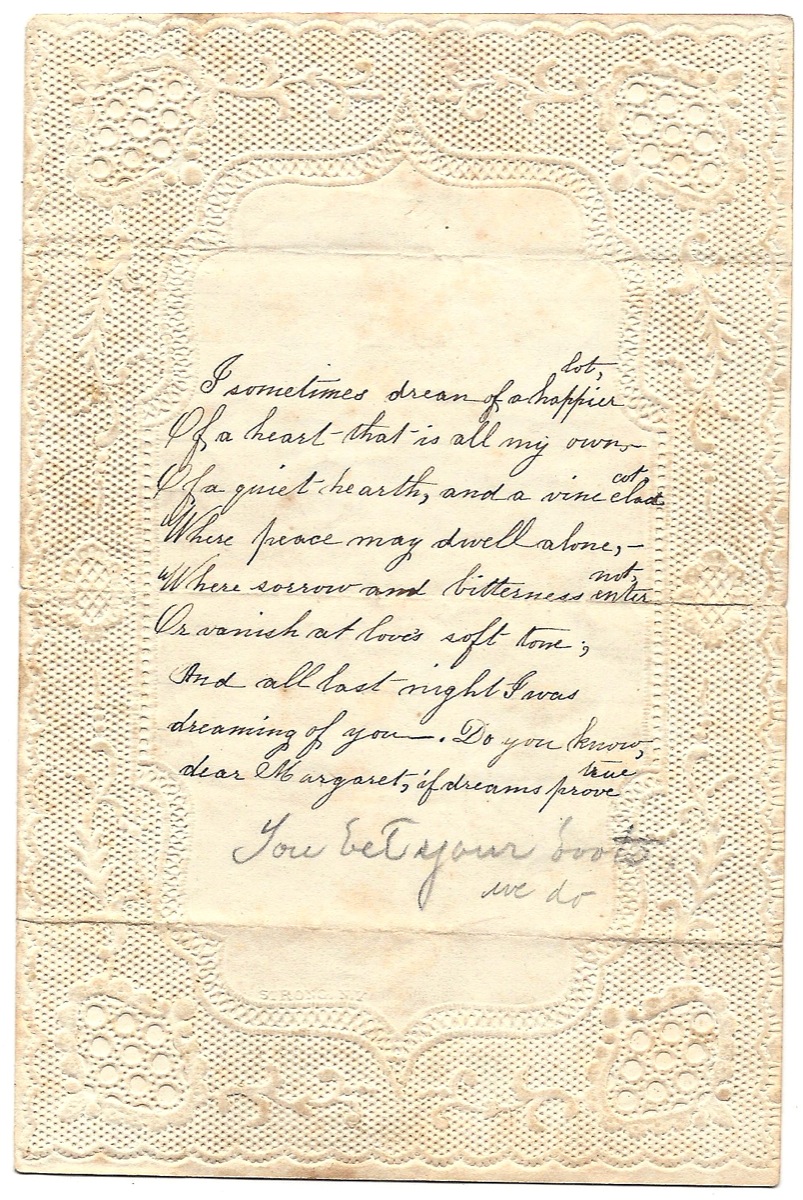 I sometimes drean of a happier lot,
Of a heart that is all my own,-
Of a quiet hearth, and a vine clad cot,
Where peace may dwell alone,-
Where sorrow and bitterness enter not,
Or vanish at love's soft tone;
And all last night I was
dreaming of you—. Do you know,-
dear Margaret, if dreams prove true
You bet your boots
we do
STRONG. N.Y.